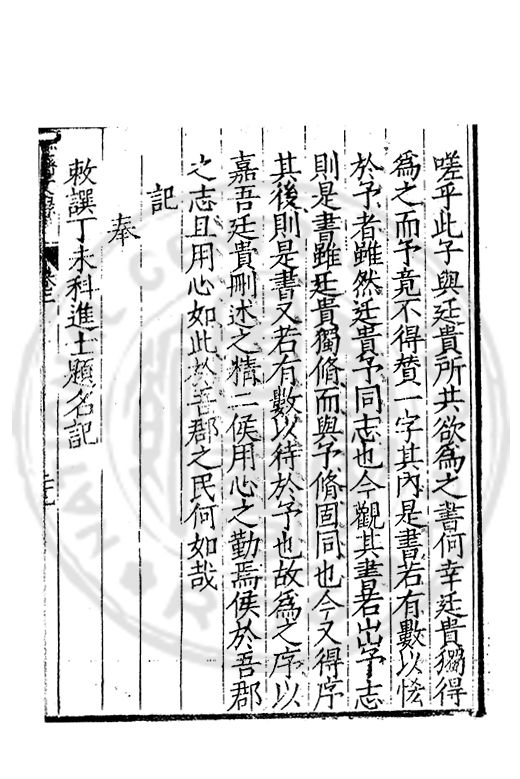 嗟乎此予與廷貴所共欲爲之書何幸廷貴獨得
爲之而予竟不得贊一字其內是書若有數以恡
於予者雖然廷貴予同志也今觀其書若出予志
則是書雖廷貴獨脩而與予脩固同也今又得序
其後則是書又若有數以待於予也故爲之序以
嘉吾廷貴刪述之精二侯用心之勤焉侯於吾郡
之志且用心如此於吾郡之民何如哉
記
奉
敕譔丁未科進士題名記